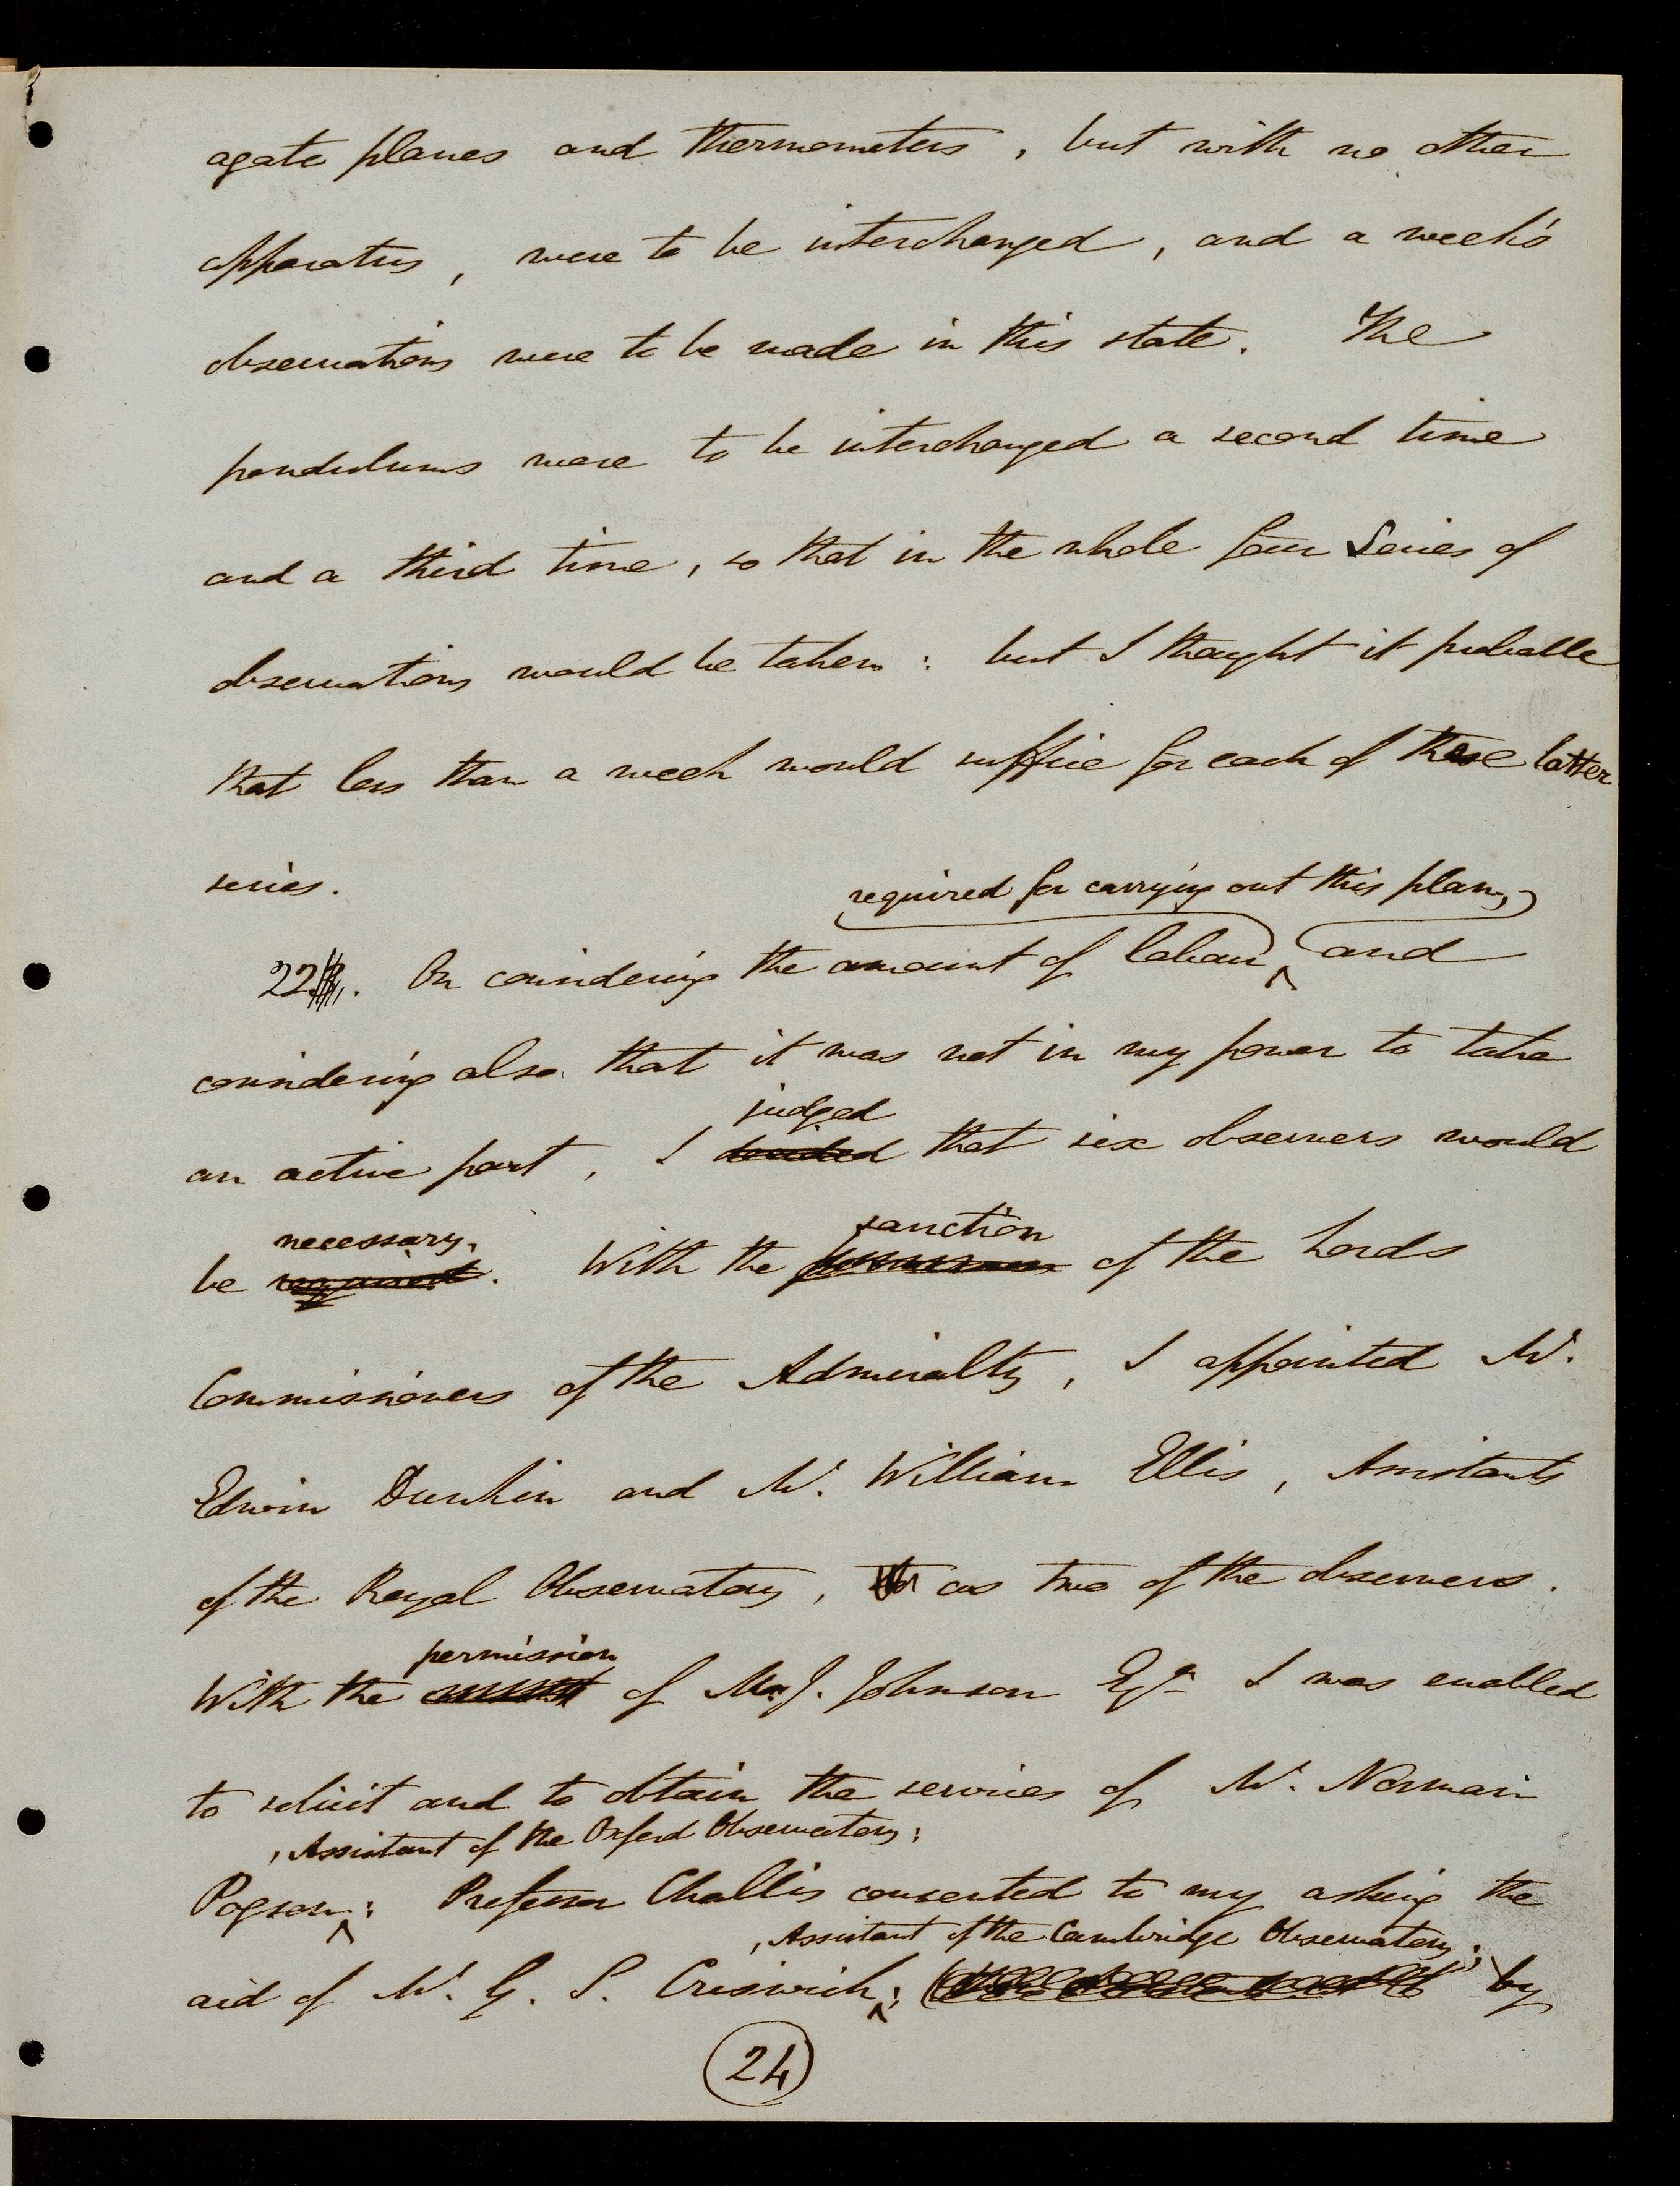 agate planes and thermometers, but with no other
apparatus, were to be interchanged, and a week's
observations were to be made in this state. The
pendulums were to be interchanged a second time
and a third time, so that in the whole four Series of
observations would be taken: but I thought it probable
that less than a week would suffice for each of these latter
series.
required for carrying out this plan,
22. On considering the amount of labour and
considering also that it was not in my power to take
judged
an active part, I decided that six observers would
necessary. sanction
be required. With the permission of the Lords
Commissioners of the Admiralty, I appointed Mr.
Edwin Dunkin and Mr. William Ellis, Assistants
of the Royal Observatory, as two of the observers.
permission
With the consent of M. J. Johnson Esqr I was enabled
to solicit and to obtain the services of Mr. Norman
, Assistant of the Oxford Observatory;
Pogson; Professor Challis consented to my asking the
, Assistant of the Cambridge Observatory;
aid of Mr. G. S. Criswick; by
24